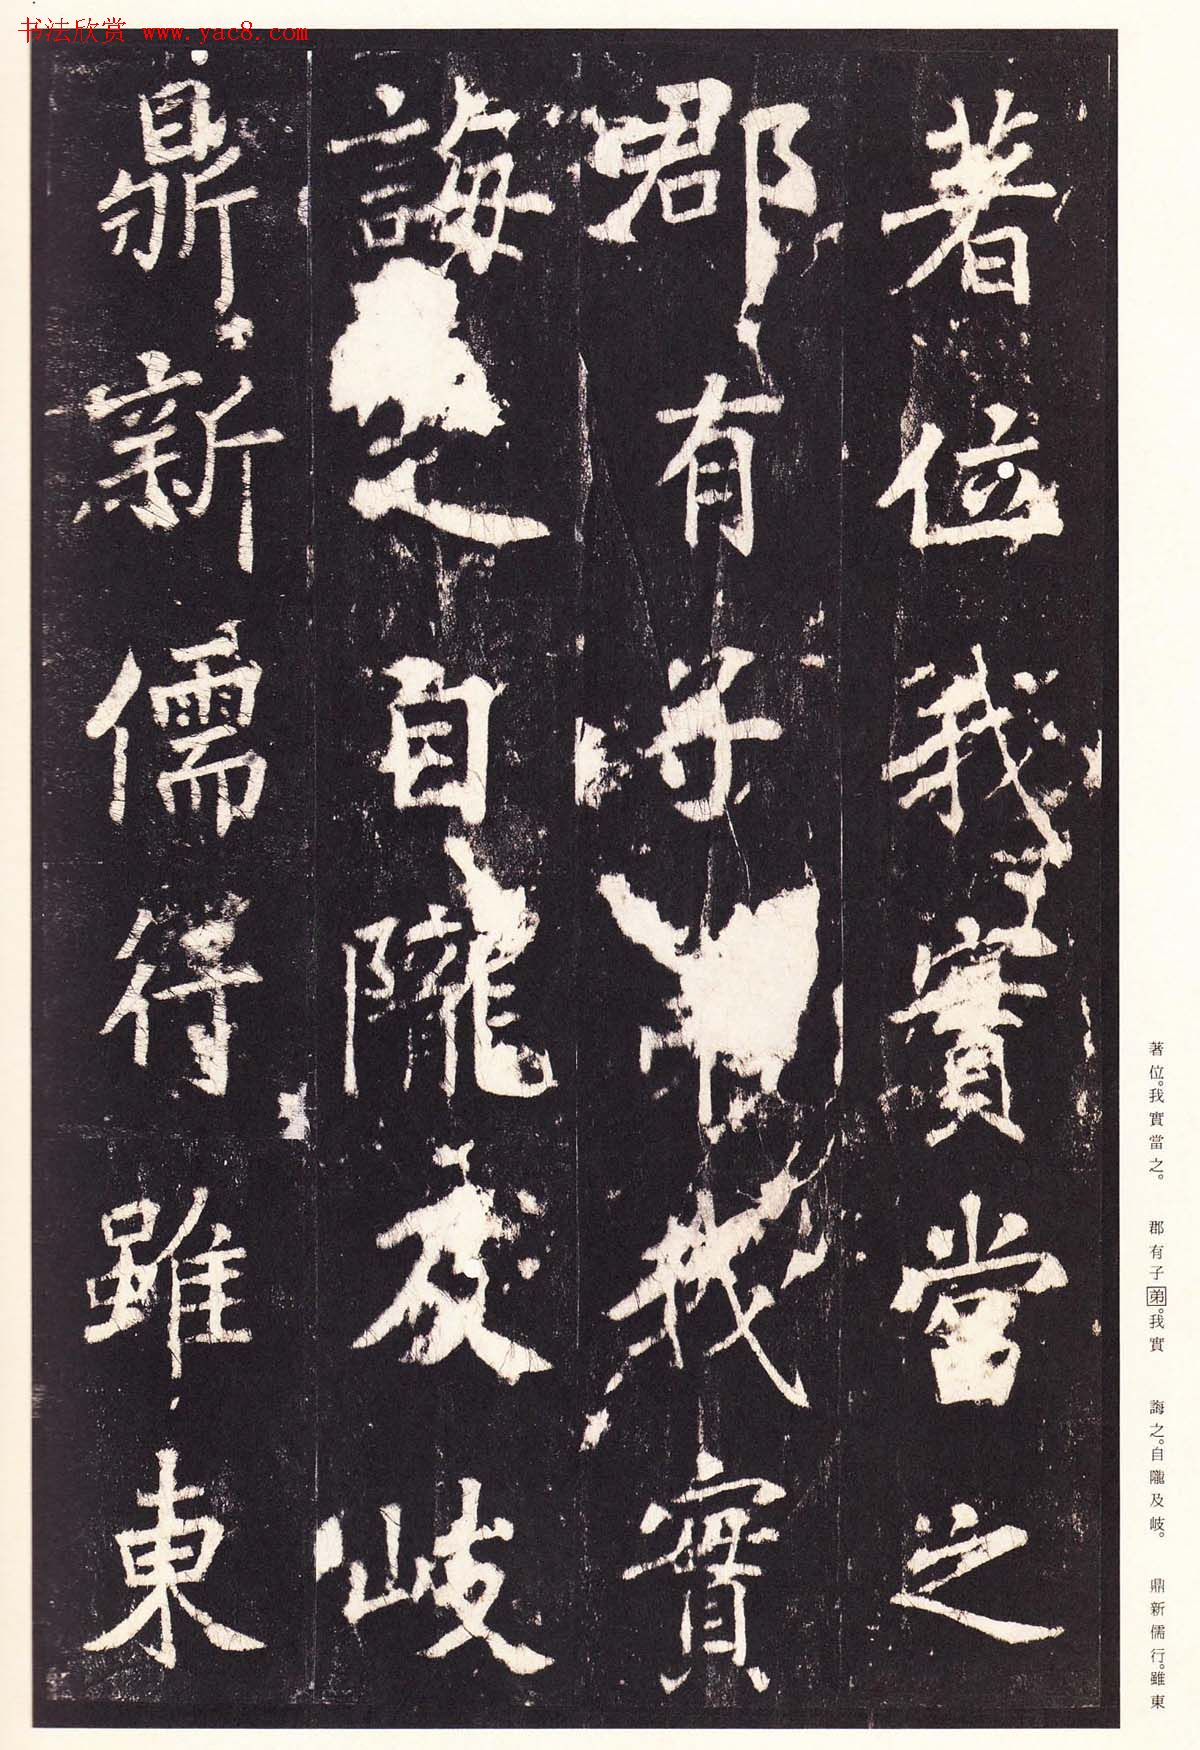 书法欣赏 www.yac8.com
著位我實當之
郡有子我實
誨之自隴及岐
鼎新儒行雖東
著位。我實當之。 郡有子弟。我實 誨之。自隴及岐。 鼎新儒行。雖東